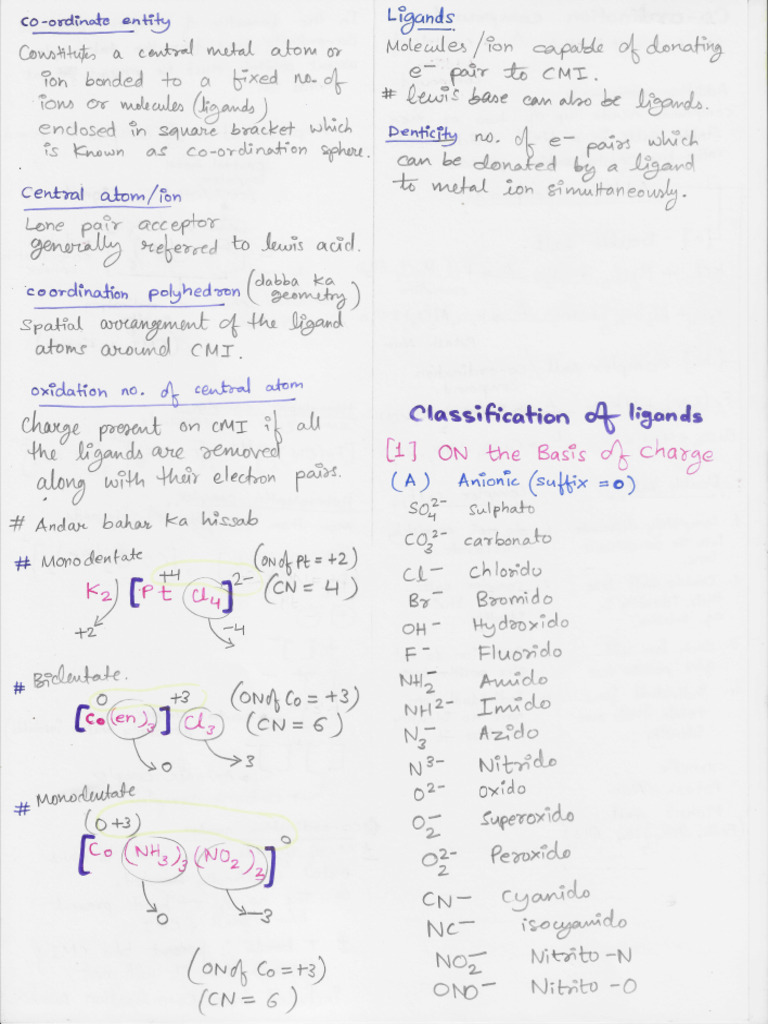 co-ordinate entity
Constitutes a central metal atom or
ion bonded to a fixed no. of
ions or molecules (ligands)
enclosed in square bracket which
is known as co-ordination sphere.
Central atom/ion
Lone pair acceptor
generally referred to lewis acid.
coordination polyhedron (dabba ka geometry)
Spatial arrangement of the ligand
atoms around CMI.
oxidation no. of central atom
Charge present on CMI if all
the ligands are removed
along with their electron pairs.
# Andar bahar ka hissab
# Monodentate (ON of Pt = +2)
+4
K2 [Pt Cl4]2- (CN = 4)
+2 -4
# Bidentate.
0 +3 (ON of Co = +3)
[Co(en)3] Cl3 (CN = 6)
0 3
# Monodentate
(0+3)
[Co (NH3)3 (NO2)2]0
0 -3
(ON of Co = +3)
(CN = 6)
Ligands
Molecules/ion capable of donating
e- pair to CMI.
# lewis base can also be ligands.
Denticity no. of e- pairs which
can be donated by a ligand
to metal ion simultaneously.
Classification of ligands
[1] ON the Basis of charge
(A) Anionic (suffix = o)
SO4 2- sulphato
CO3 2- carbonato
Cl- Chlorido
Br- Bromido
OH- Hydroxido
F- Fluorido
NH2- Amido
NH2- Imido
N3- Azido
N3- Nitrido
O2- oxido
O2- Superoxido
O2 2- Peroxido
CN- Cyanido
NC- isocyanido
NO2- Nitrito -N
ONO- Nitrito -O